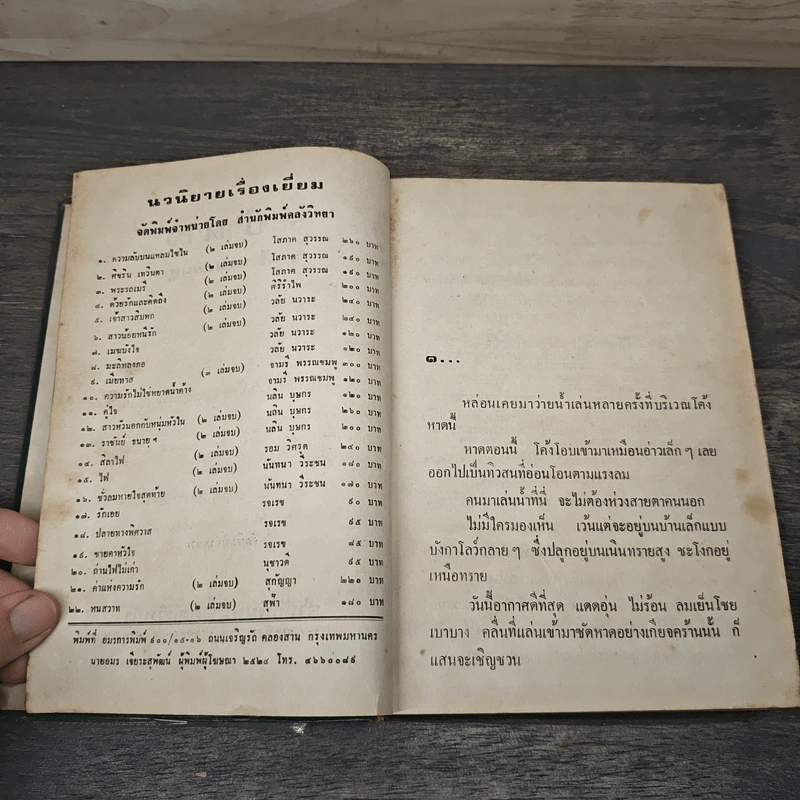 นวนิยายเรื่องเยี่ยม
จัดพิมพ์จำหน่ายโดย สำนักพิมพ์คลังวิทยา
๑. ความลับบนแหลมไซใน (๒ เล่มจบ) โสภาค สุวรรณ ๒๖๐ บาท
๒. ศิขริน เทวินตา (๒ เล่มจบ) โสภาค สุวรรณ ๑๙๐ บาท
๓. พระรถเมรี (๒ เล่มจบ) โสภาค สุวรรณ ๑๙๐ บาท
๔. ด้วยรักและคิดถึง (๒ เล่มจบ) ศรีรำไพ ๒๐๐ บาท
๕. เจ้าสาวสิบหก (๒ เล่มจบ) วลัย นวาระ ๒๔๐ บาท
๖. สาวน้อยหนีรัก (๒ เล่มจบ) วลัย นวาระ ๒๔๐ บาท
๗. เมฆบังใจ วลัย นวาระ ๑๒๐ บาท
๘. มะลิหลงกอ วลัย นวาระ ๑๒๐ บาท
๙. เมียทาส (๓ เล่มจบ) จามรี พรรณชมพู ๓๐๐ บาท
๑๐. ความรักไม่ใช่หยาดน้ำค้าง จามรี พรรณชมพู ๑๒๐ บาท
๑๑. คู่ใจ นลิน บุษกร ๑๒๐ บาท
๑๒. สาวหัวนอกกับหนุ่มหัวใน (๒ เล่มจบ) นลิน บุษกร ๒๖๐ บาท
๑๓. ราชันย์ ธนายุๆ (๒ เล่มจบ) นลิน บุษกร ๒๐๐ บาท
๑๔. สีลาไฟ (๒ เล่มจบ) รอม วิศรุต ๒๔๐ บาท
๑๕. ไฟ (๒ เล่มจบ) นันทนา วีระชน ๑๘๐ บาท
๑๖. ชั่วลมหายใจสุดท้าย (๒ เล่มจบ) นันทนา วีระชน ๑๗๐ บาท
๑๗. รักเอย รจเรข ๙๐ บาท
๑๘. ปลายทางพิศวาส รจเรข ๙๕ บาท
๑๙. ชายคาหัวใจ รจเรข ๘๕ บาท
๒๐. ถ่านไฟไม่เก่า นุชาวดี ๙๕ บาท
๒๑. ค่าแห่งความรัก (๒ เล่มจบ) สุกัญญา ๒๒๐ บาท
๒๒. หนสวาท (๒ เล่มจบ) สุฟ้า ๑๘๐ บาท
พิมพ์ที่ อมรการพิมพ์ ๙๐๐/๑๕-๑๖ ถนนเจริญรัถ คลองสาน กรุงเทพมหานคร
นายอมร เจียระสุพัฒน์ ผู้พิมพ์ผู้โฆษณา ๒๕๒๔ โทร. ๔๖๖๐๐๘๙
๑...
หล่อนเคยมาว่ายน้ำเล่นหลายครั้งที่บริเวณโค้ง
หาดนี้
หาดตอนนี้ โค้งโอบเข้ามาเหมือนอ่าวเล็กๆ เลย
ออกไปเป็นทิวสนที่อ่อนโอนตามแรงลม
คนมาเล่นน้ำที่นี่ จะไม่ต้องห่วงสายตาคนนอก
ไม่มีใครมองเห็น เว้นแต่จะอยู่บนบ้านเล็กแบบ
บังกาโลว์กลายๆ ซึ่งปลูกอยู่บนเนินทรายสูง ชะโงกอยู่
เหนือทราย
วันนี้อากาศดีที่สุด แดดอุ่น ไม่ร้อน ลมเย็นโชย
เบาบาง คลื่นที่แล่นเข้ามาซัดหาดอย่างเกียจคร้านนั้น ก็
แสนจะเชิญชวน